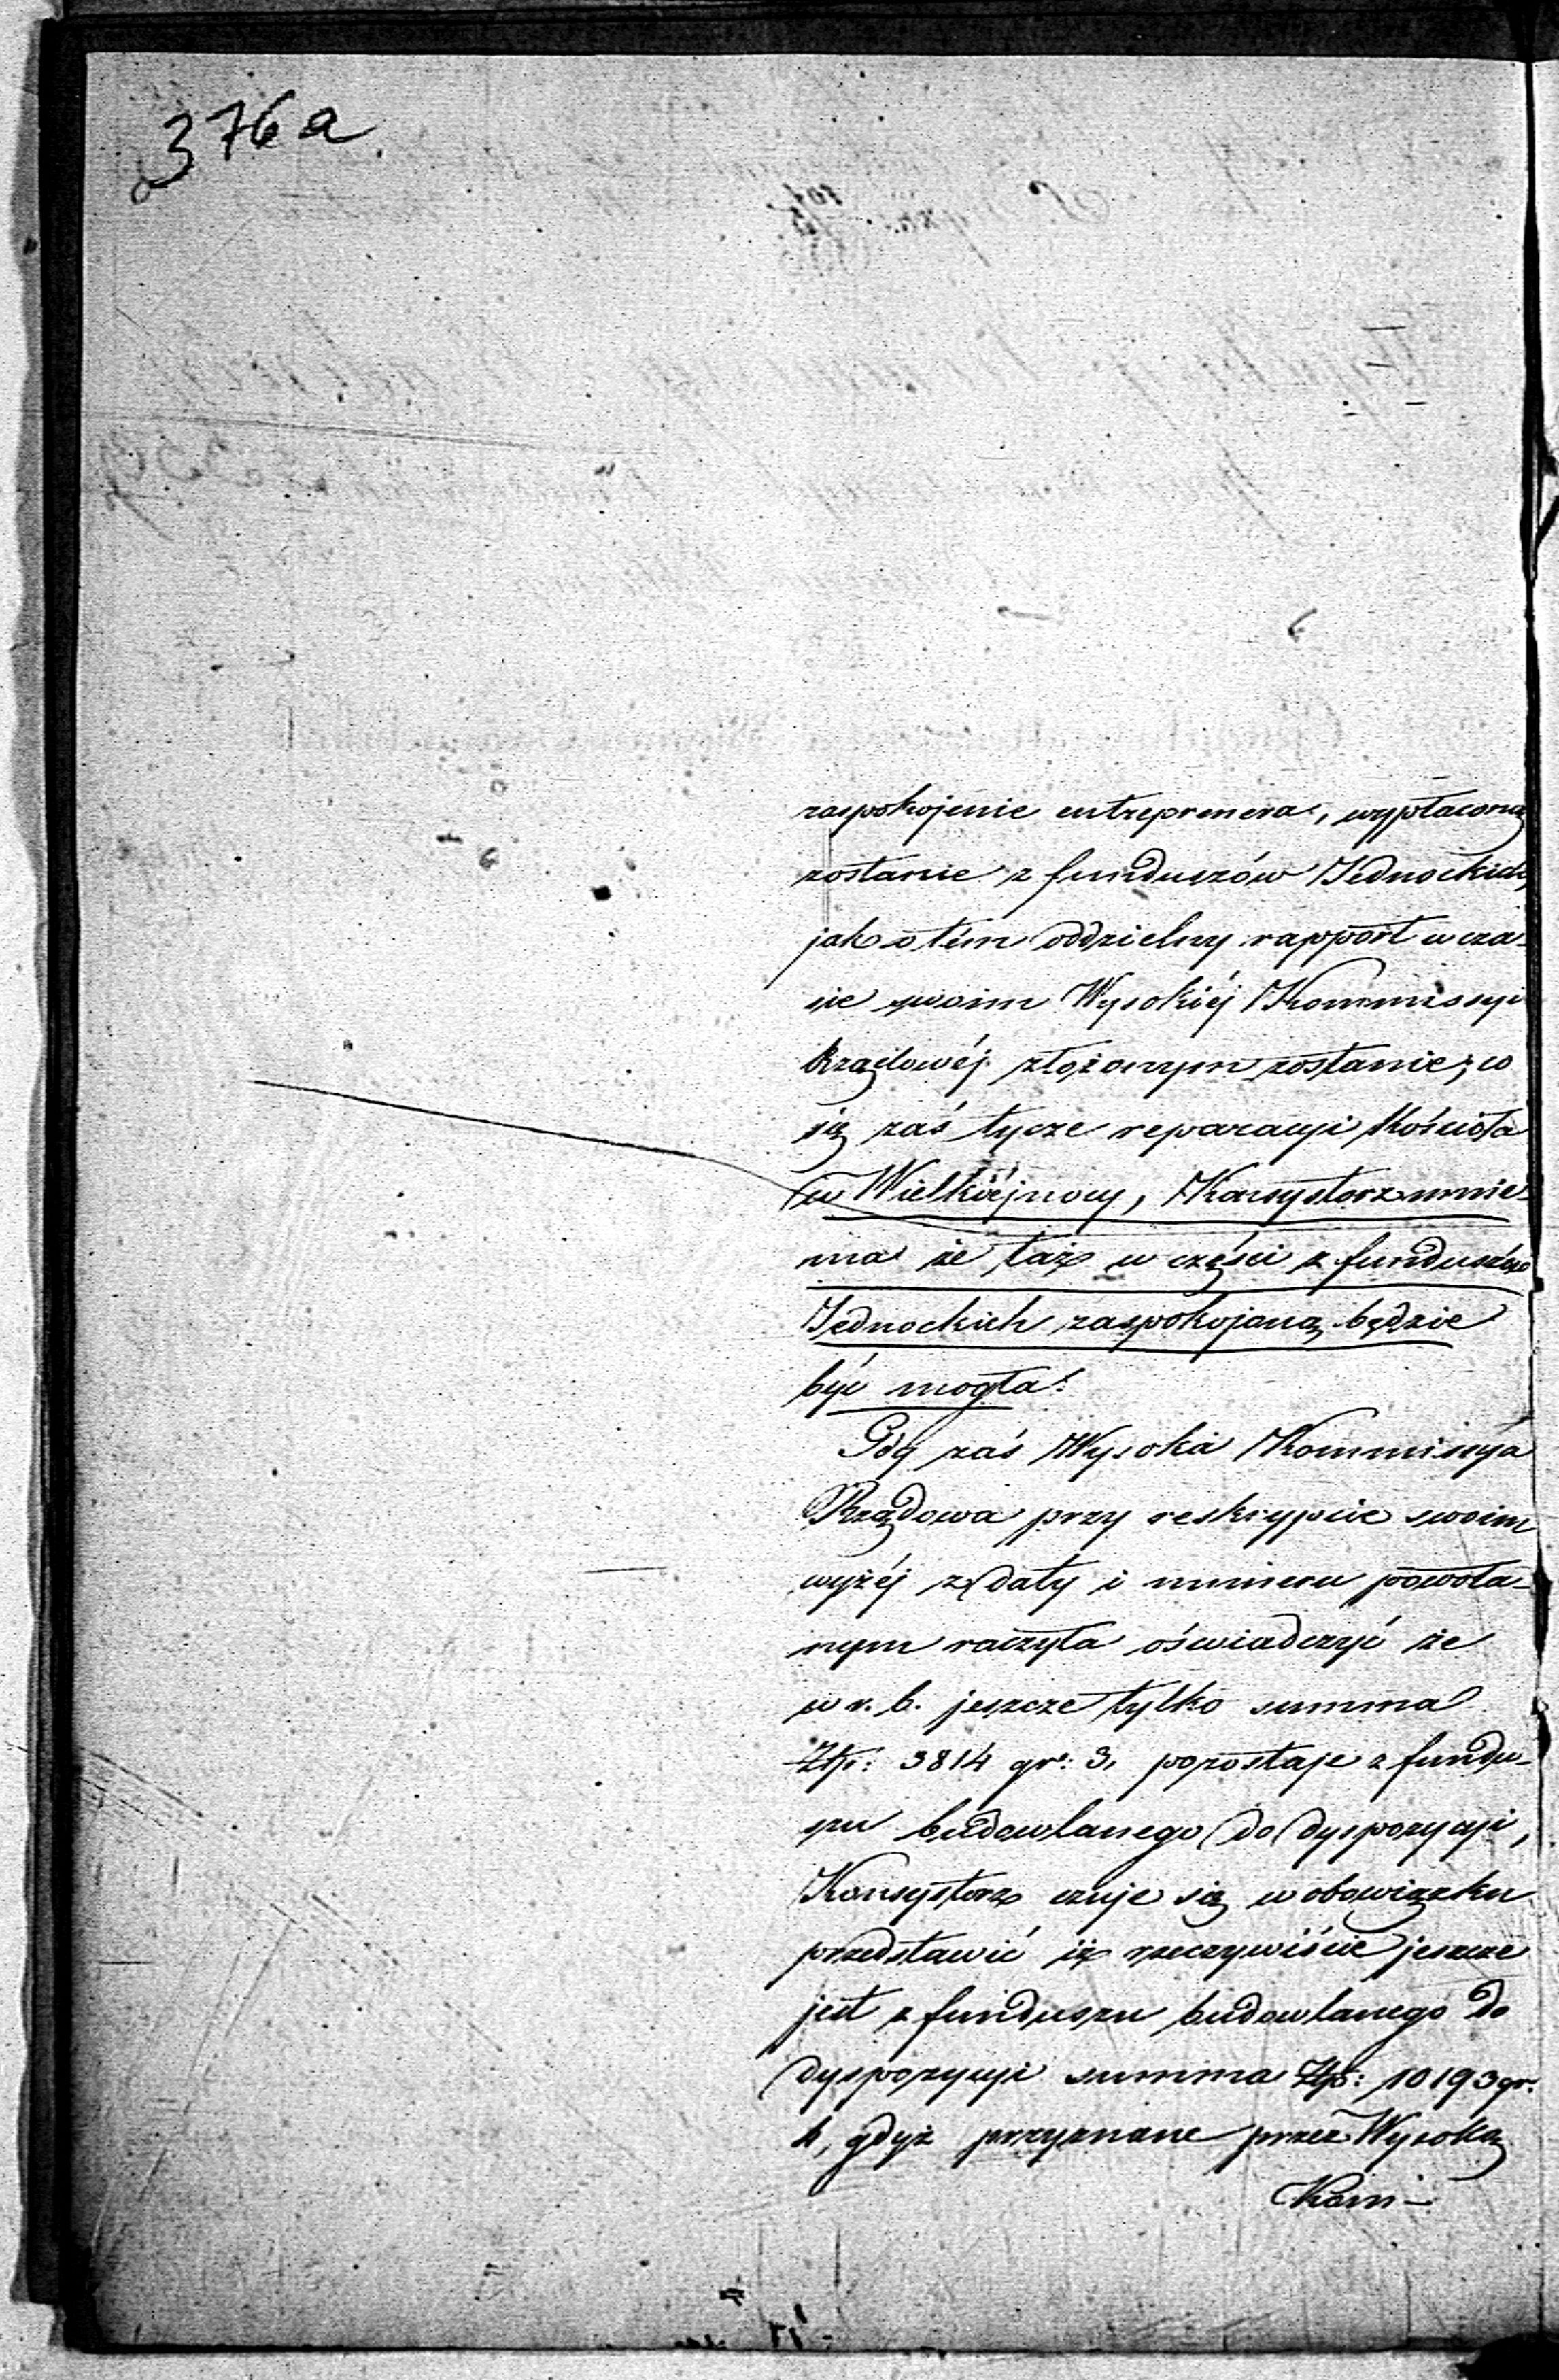 376a
zaspokojenie entreprenera, wypłaconą
zostanie z funduszów Jednockich,
jak o tém oddzielny rapport w cza-
sie swoim Wysokiéj Kommissyi
Rządowéj złożonym zostanie; co
się zaś tycze reparacyi Kościoła
w Wielkiéjnocy, Konsystorz mnie-
ma że taż w części z funduszów
Jednockich zaspokojaną będzie
być mogła.
Gdy zaś Wysoka Kommissya
Rządowa przy reskrypcie swoim
wyżéj z daty i numeru powoła-
nym raczyła oświadczyć że
w r. b. jeszcze tylko summa
Złp: 3814 gr: 3, pozostaje z fundu-
szu budowlanego do dyspozycyi,
Konsystorz czuje się w obowiązku
przedstawić iż rzeczywiście jeszcze
jest z funduszu budowlanego do
dyspozycyi summa Złp: 10193 gr.
4, gdyż przyznane przez Wysoką
Kom-